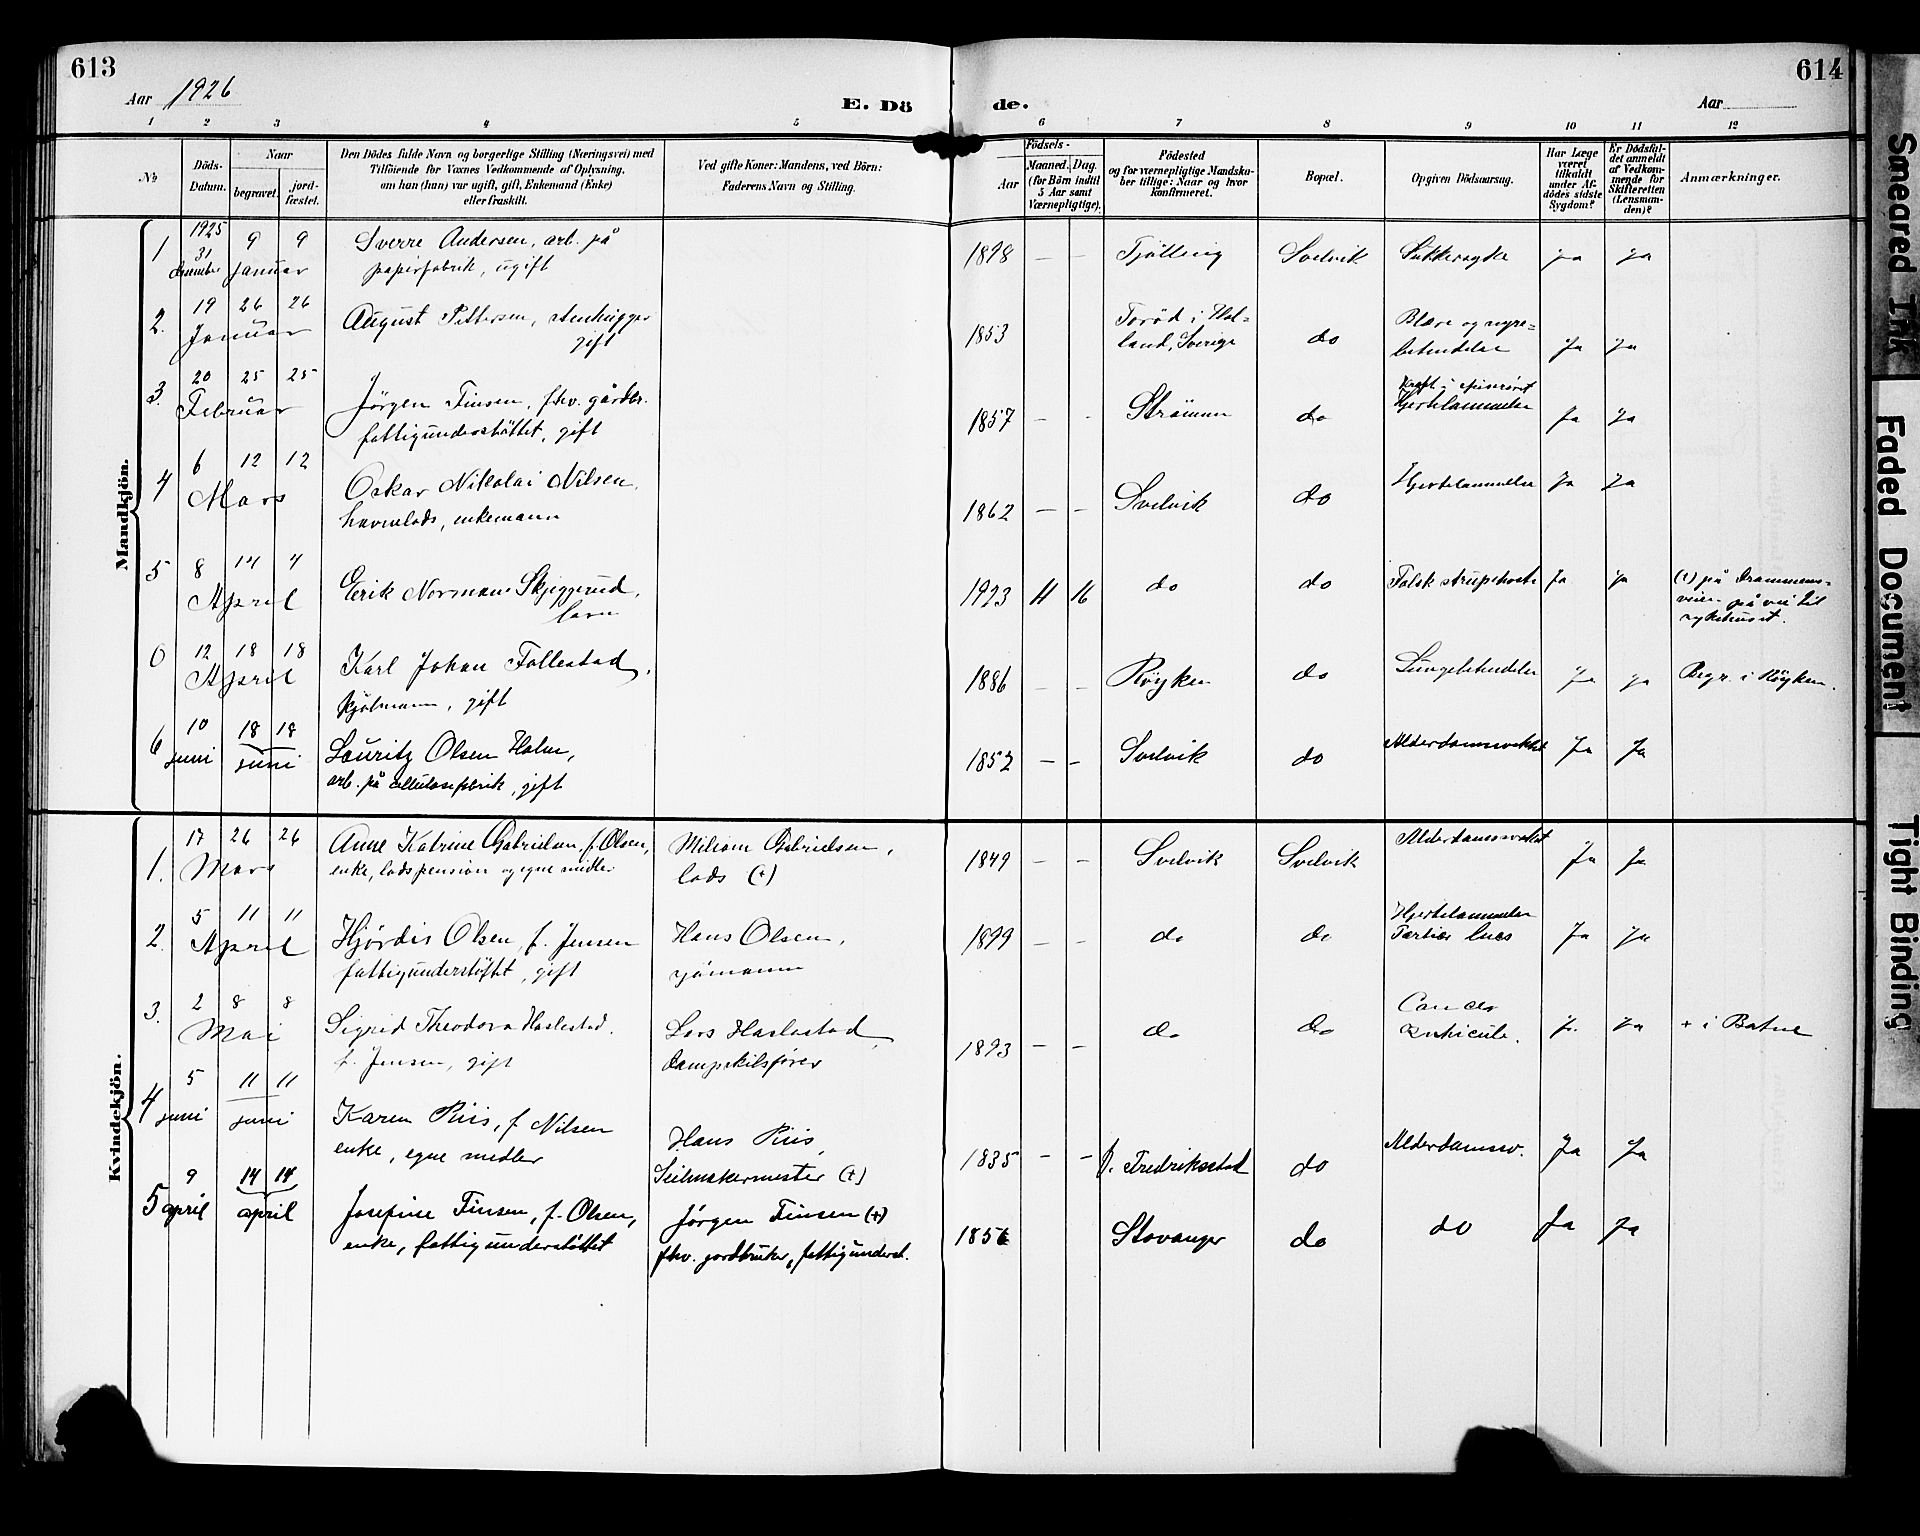 613
614
Aar 1926
E. Dö
de.
Aar
1 2 3 4 5 6 7 8 9 10 11 12
No
Döds-
Datum.
Naar
begravet.
jord-
fæstet.
Den Dödes fulde Navn og borgerlige Stilling (Næringsvei) med
Tilföiende for Voxnes Vedkommende af Oplysning,
om han (hun) var ugift, gift, Enkemand (Enke)
eller fraskilt.
Ved gifte Koner: Mandens, ved Börn:
Faderens Navn og Stilling.
Födsels-
Aar
Maaned.
Dag.
(for Börn indtil
5 Aar samt
Værnepligtige).
Födested
og for værnepligtige Mandska-
ber tillige: Naar og hvor
konfirmeret.
Bopæl.
Opgiven Dödsaarsag.
Har Læge
været
tilkaldt
under Af-
dödes sidste
Sygdom?
Er Dödsfal-
det anmeldt
af Vedkom-
mende for
Skifteretten
(Lensman-
den)?
Anmærkninger.
Mandkjön.
1 1925 31 desember 9 9 januar Sverre Andersen, arb. på 1898 — — Tjölling Svelvik Sukkersyke ja ja
papirfabrik, ugift
2. 19 26 26 Januar August Pettersen, stenhugger 1853 i Hal- do Blære og nyre- Ja ja
gift land, Sverige betendelse
3. 20 25 25 Februar Jörgen Finsen, fhv. gårdbr. 1857 — — Strömm do Kræft i spiserøret Ja ja
fattigunderstöttet, gift Hjertelammelse
4 6 12 12 Mars Oskar Nikolai Nilsen, 1862 — — Svelvik do Hjertelammelse Ja ja
havnelods, enkemann
5 8 14 4 April Erik Norman Skjeggerud, 1923 11 16 do do Falsk strupehoste Ja ja (+) på Drammens-
barn veien på vei til
sykehuset.
0 12 18 18 April Karl Johan Follestad, 1886 — — Röyken do Lungebetendelse Ja ja Begr. i Röyken.
gift
6 10 juni 18 18 juni Lauritz Olsen Holm, 1852 — — Svelvik do Alderdomssvekket Ja Ja
arb. på cellulosefabrik, gift
Kvindekjön.
1. 17 26 26 Mars Anne Katrine Gabrielsen, f. Olsen, Gabrielsen, 1849 — — Svelvik Svelvik Alderdomssvekket Ja Ja
enke, lodspension og egne midler lods (+)
2. 5 11 11 April Hjördis Olsen, f. Jensen Hans Olsen, 1899 — — do do Hjertelammelse Ja ja
fattigunderstöttet, gift sjömann Tertiær lues
3. 2 8 8 Mai Sigrid Theodora Haslestad, Lars Haslestad, 1893 — — do do Cancer ja + i Botne
f. Jensen, gift Dampskibsförer
4 5 juni 11 11 juni Karen Riis, f. Nilsen Hans Riis, 1835 — — Fredrikstad do Alderdomssv. Ja Ja
enke, egne midler Seilmakermester (+)
5 9 april 14 14 april Josefine Finsen, f. Olsen, Jörgen Finsen (+) 1856 Stavanger do do Ja Ja
enke, fattigunderstöttet fhv. gardbruker, fattigunderst.
Smeared Ink
Faded Document
Tight Binding